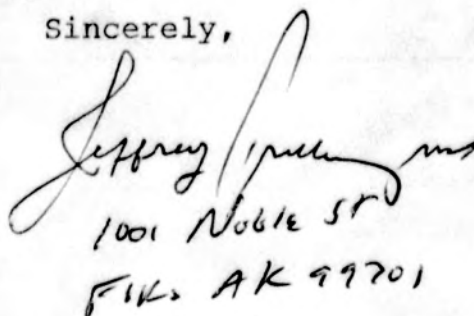 Sincerely,
Jeffrey
1001 Noble St
FBKS AK 99701